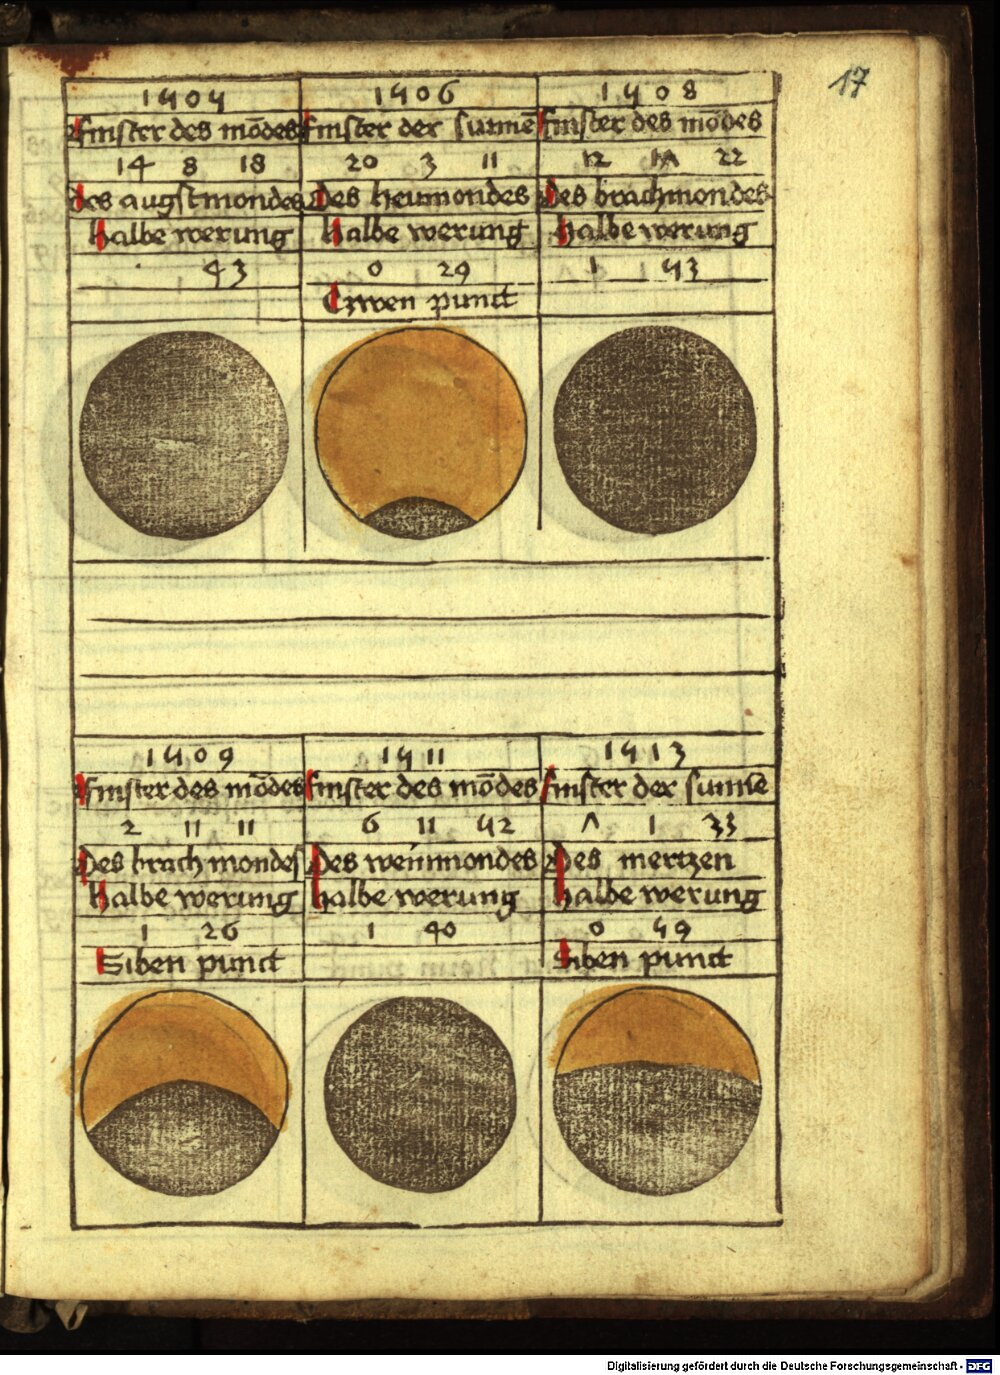 1505
finster des mōdes
14 8 18
Des augstmondes
halbe werung
53
1506
finster der sunnē
20 3 11
Des heumondes
halbe werung
0 29
Czwen punct
1508
finster des mōdes
12 17 22
Des brachmondes
halbe werung
1 53
1509
finster des mōdes
2 11 11
Des brachmondes
halbe werung
1 26
Siben punct
1511
finster des mōdes
6 11 52
Des weinmondes
halbe werung
1 40
1513
finster der sunne
7 1 33
Des mertzen
halbe werung
0 59
Siben punct
17
Digitalisierung gefördert durch die Deutsche Forschungsgemeinschaft - DFG